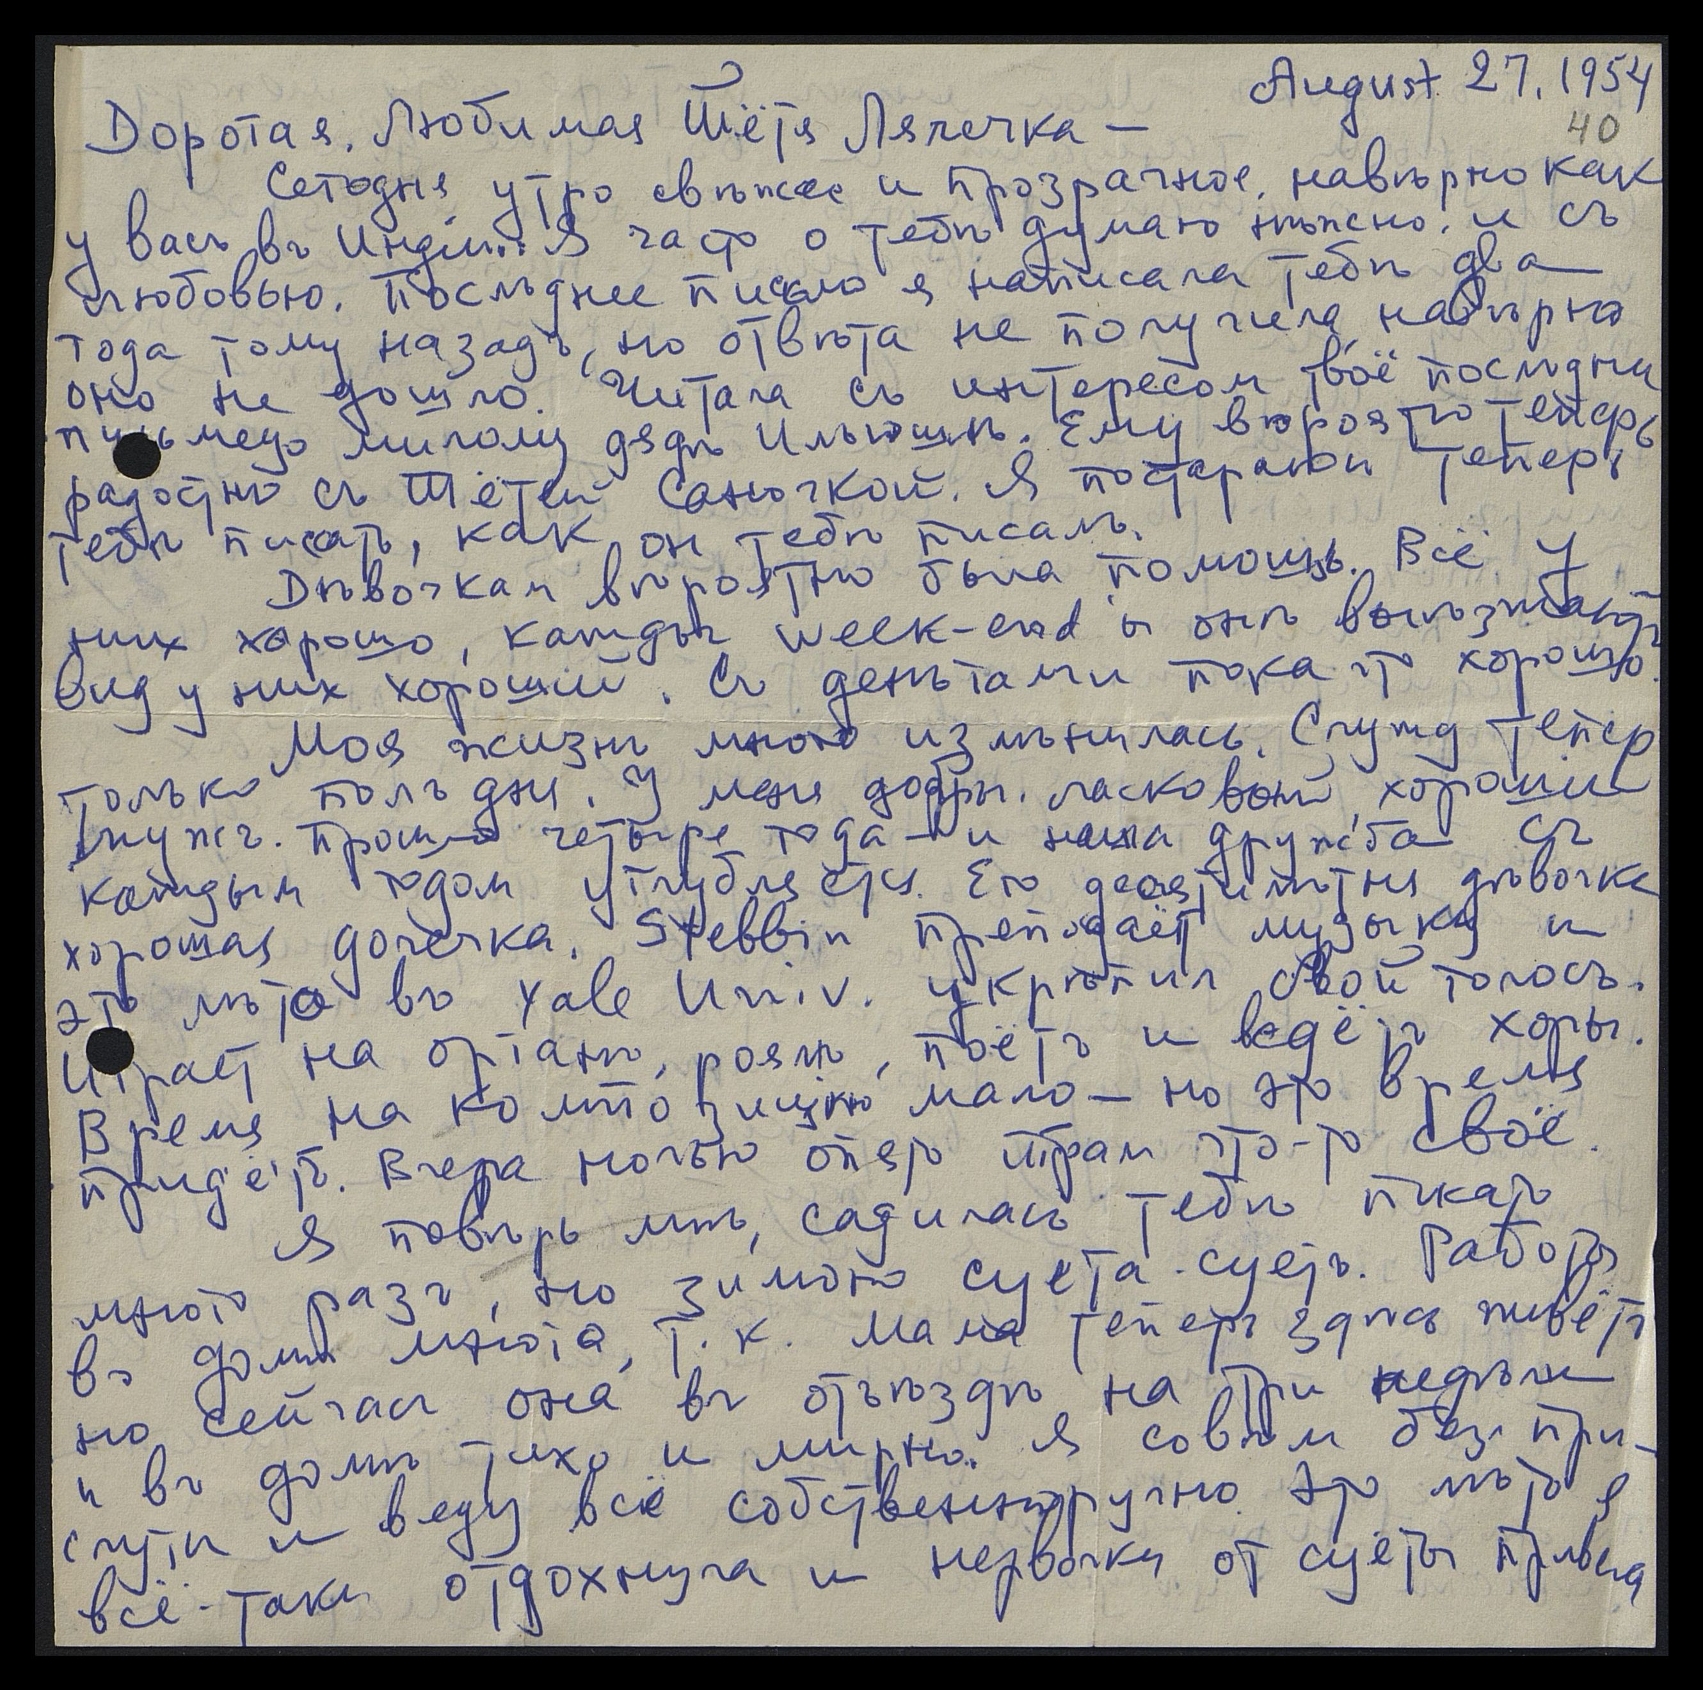 August 27, 1954
40
Дорогая, Любимая Тётя Лялечка —
Сегодня утро свѣжее и прозрачное, навѣрно как
у васъ въ Индiи... Я часто о тебѣ думаю нѣжно и съ
любовью. Послѣднее письмо я написала тебѣ два
года тому назадъ, но отвѣта не получила, навѣрно
оно не дошло. Читала съ интересом твоё послѣдни
письмецо милому дядѣ Ильюшѣ. Ему вѣроятно теперь
радостно съ Тётей Санючкой. Я постараюсь теперь
тебѣ писать, как он тебѣ писалъ.
Дѣвочкам вѣроятно была помощь. Всё у
них хорошо, каждый week-end ы онѣ выѣзжаютъ
Вид у них хороший. Съ деньгами пока что хорошо.
Моя жизнь много измѣнилась. Служу тепер
только полъ дня. У меня добры, ласковый, хороший
мужъ. Прошло четыре года — и наша дружба съ
каждым годом углубляется. Его десятилѣтня дѣвочка
хорошая дочечка. Stebbin преподаёт музыку и
это лѣто въ Yale Univ. укрѣпил свой голосъ.
Играет на органѣ, роялѣ, поётъ и ведётъ хоры.
Время на композицiю мало — но это время
придётъ. Вчера ночью опять играл что-то своё.
Я повѣрь мнѣ, садилась тебѣ писать
много разъ, но зимою суета-суетъ. Работы
въ домѣ много, т. к. мама теперь здѣсь живётъ
но сейчасъ она въ отъѣздѣ на три недѣли
и въ домѣ тихо и мирно. Я совсѣм без при-
слуги и веду всё собственноручно. Это лѣто я
всё-таки отдохнула и нервочки от суеты привела